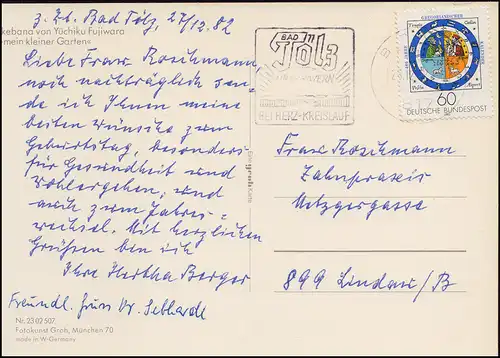 z. Zt. Bad Tölz 27/12.82
Ikebana von Yûchiku Fujiwara
»Mein kleiner Garten«
Liebe Frau Roschmann
noch nachträglich sen-
de ich Ihnen meine
besten Wünsche zum
Geburtstag, besonders
für Gesundheit und
Wohlergehen, und
auch zum Jahres-
wechsel. Mit herzlichen
Grüßen bin ich
Ihre Hertha Berger
Freundl. Gruss Dr. Gebhardt
Nr. 2302507
Fotokunst Groh, München 70
made in W.-Germany
groh Karte
BAD
Tölz
BEI HERZ-KREISLAUF
60
DEUTSCHE BUNDESPOST
Frau Roschmann
Zahnpraxis
Metzgergasse
899 Lindau/B